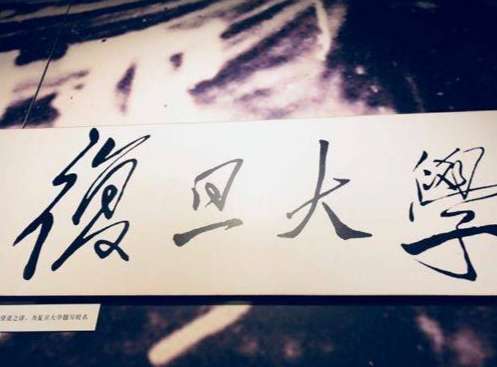 復旦大學
之请，为复旦大学题写校名